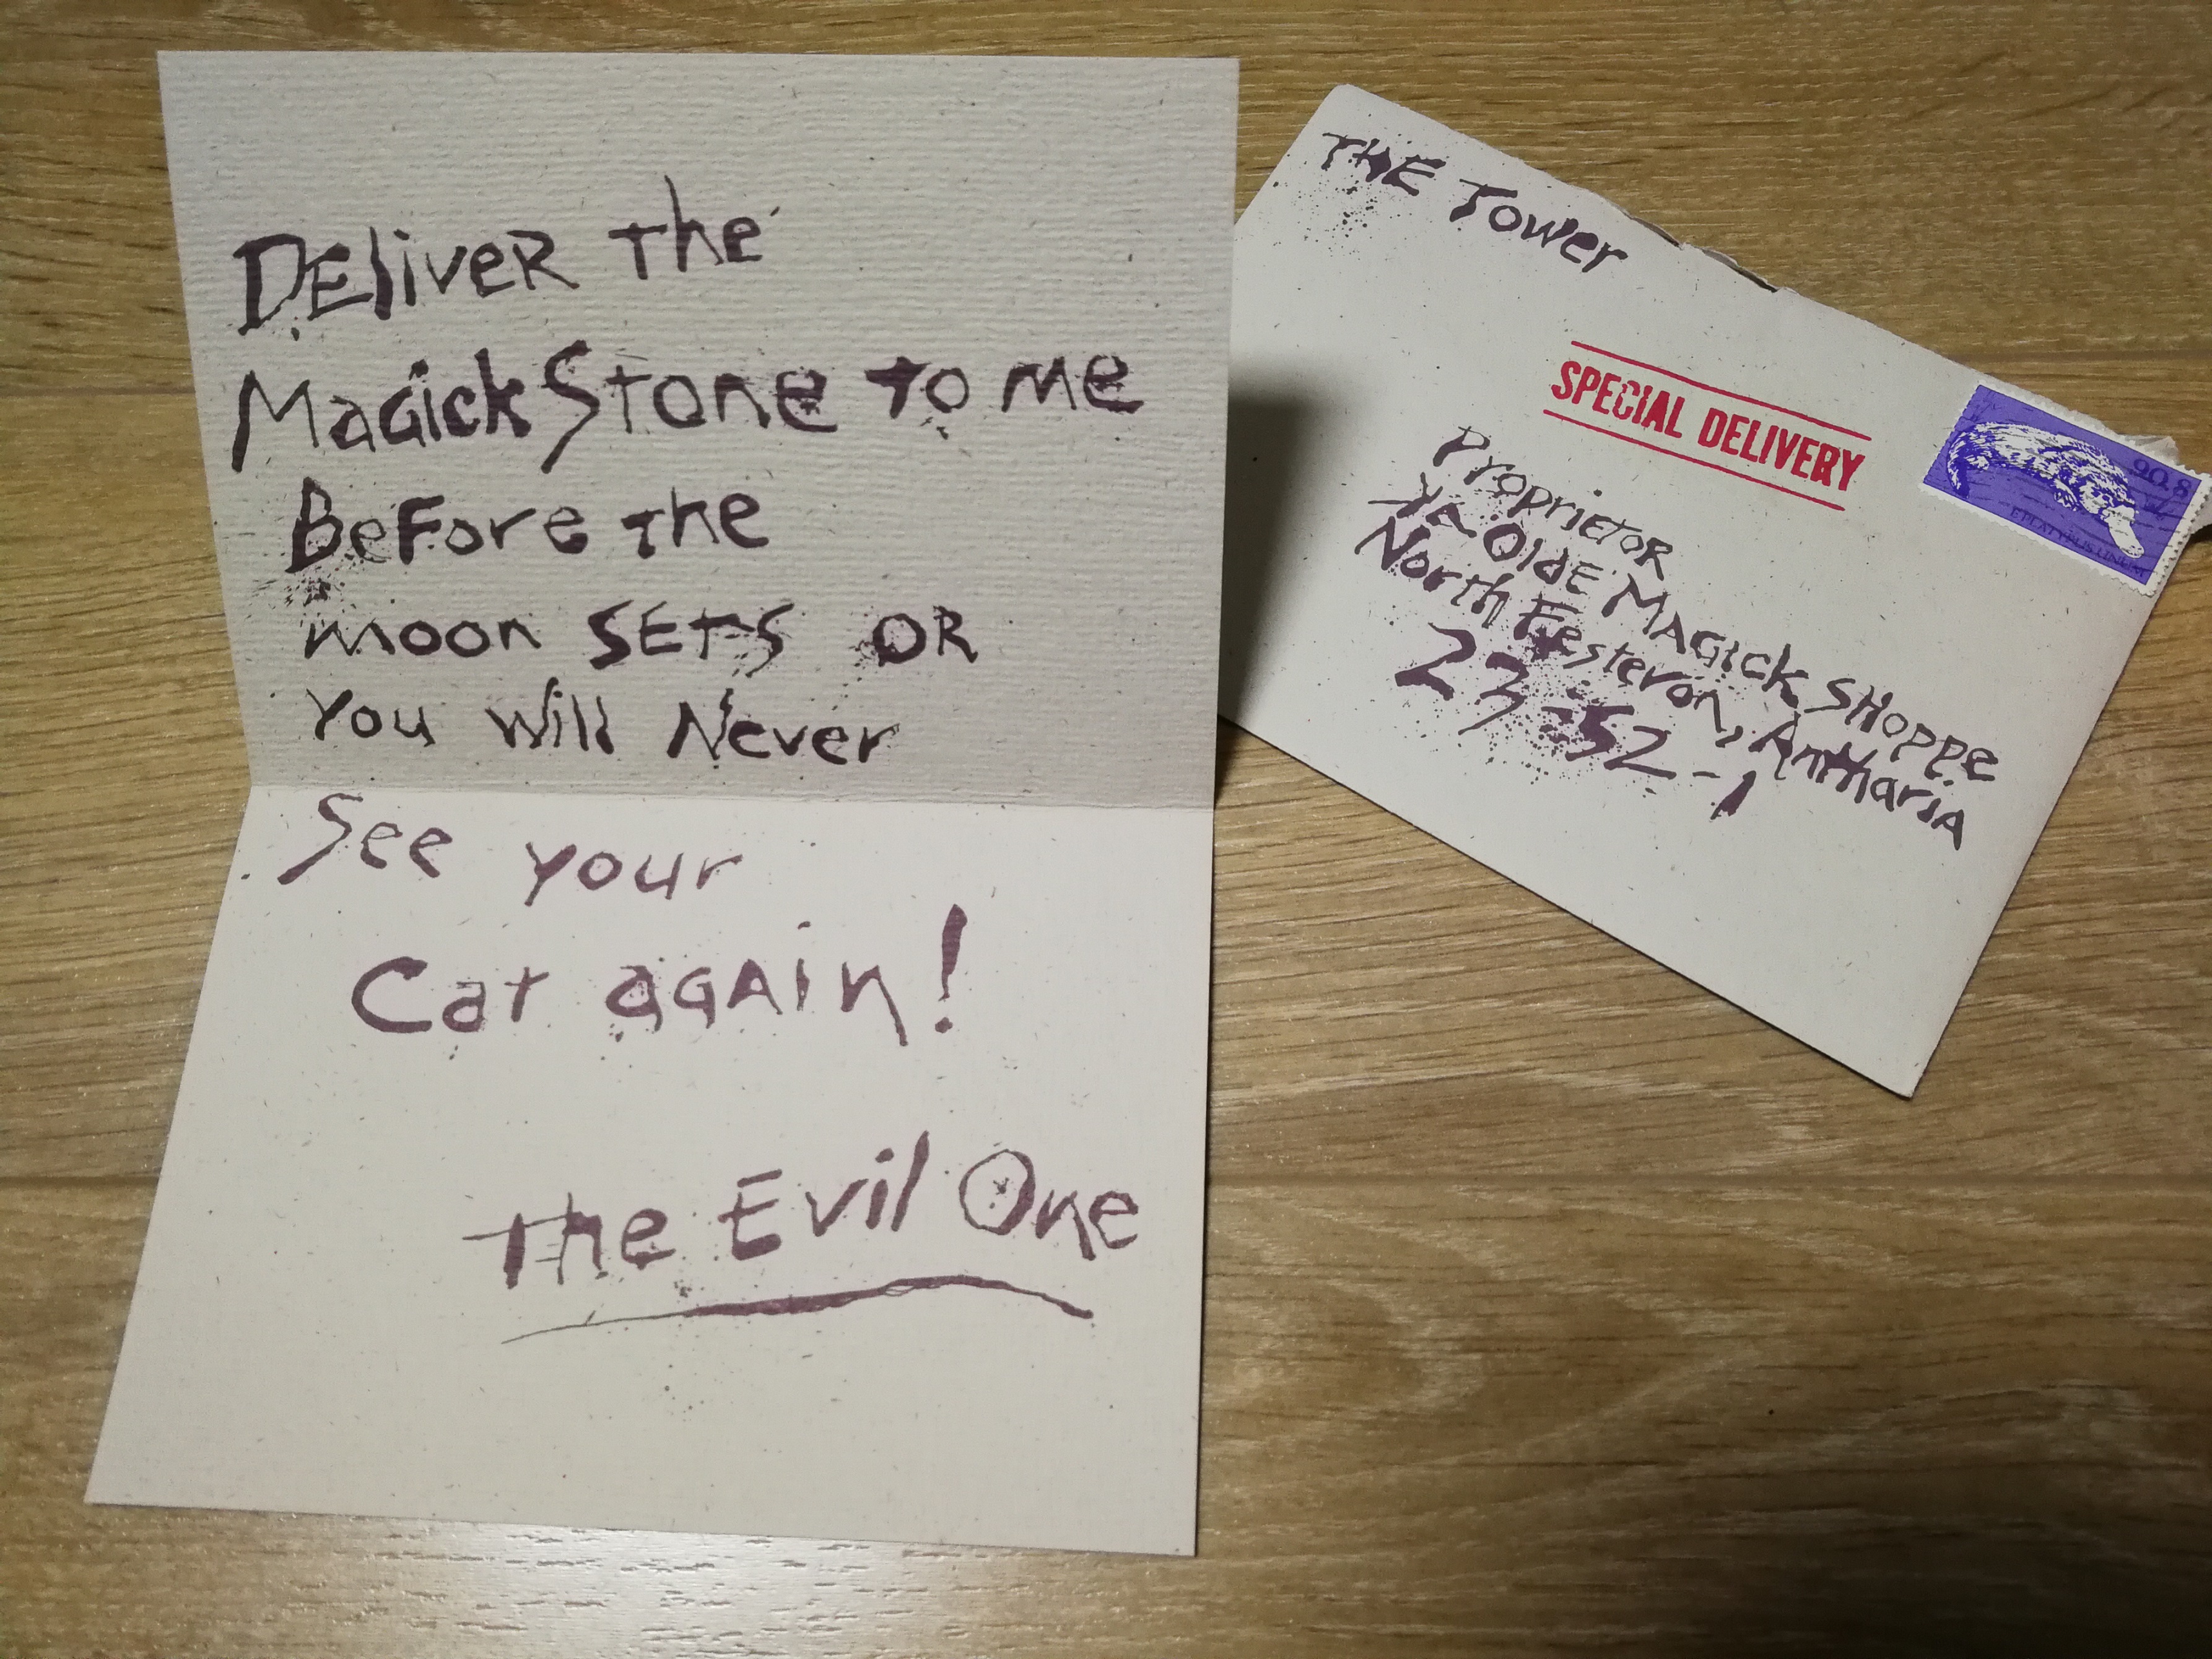 DEliveR The
Magick Stone to me
BeFore The
moon SETS OR
You Will Never
See your
Cat aGAin!
The Evil One
THE Tower
SPECIAL DELIVERY
ProprietoR
Ye OldE MAGick SHoppe
North Festeron, AntharIA
23-52-1